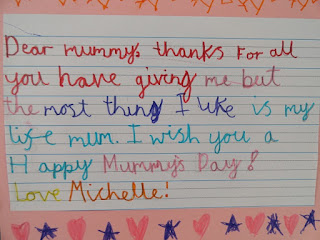 Dear mummy: thanks for all
you have giving me but
the most thing I like is my
life mum. I wish you a
Happy Mummy's Day!
Love Michelle!